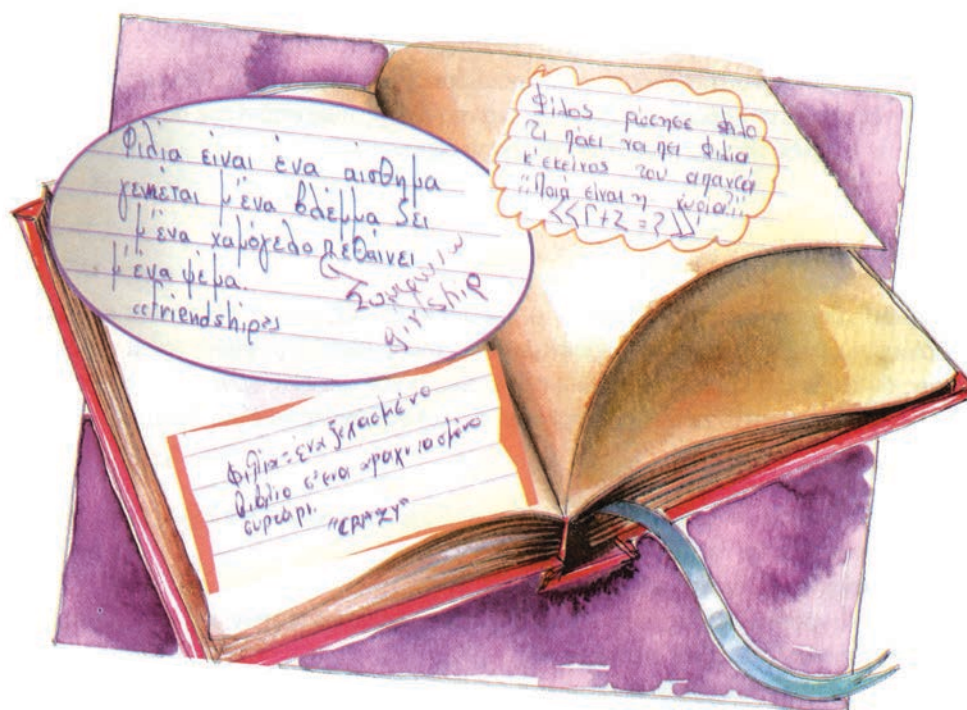 Φιλία είναι ένα αίσθημα
γεννιέται μ' ένα βλέμμα ζει
μ' ένα χαμόγελο πεθαίνει
μ' ένα ψέμα.
«friendship»
Συμφωνώ
girlship
Φίλος ρώτησε φίλο
τι πάει να πει φιλία
κ' εκείνος του απαντά
"Ποιά είναι η κυρία;"
<<Γ+Σ=?>>
Φιλία = ένα ξεχασμένο
βιβλίο σ' ένα αραχνιασμένο
συρτάρι.
"CRAZY"